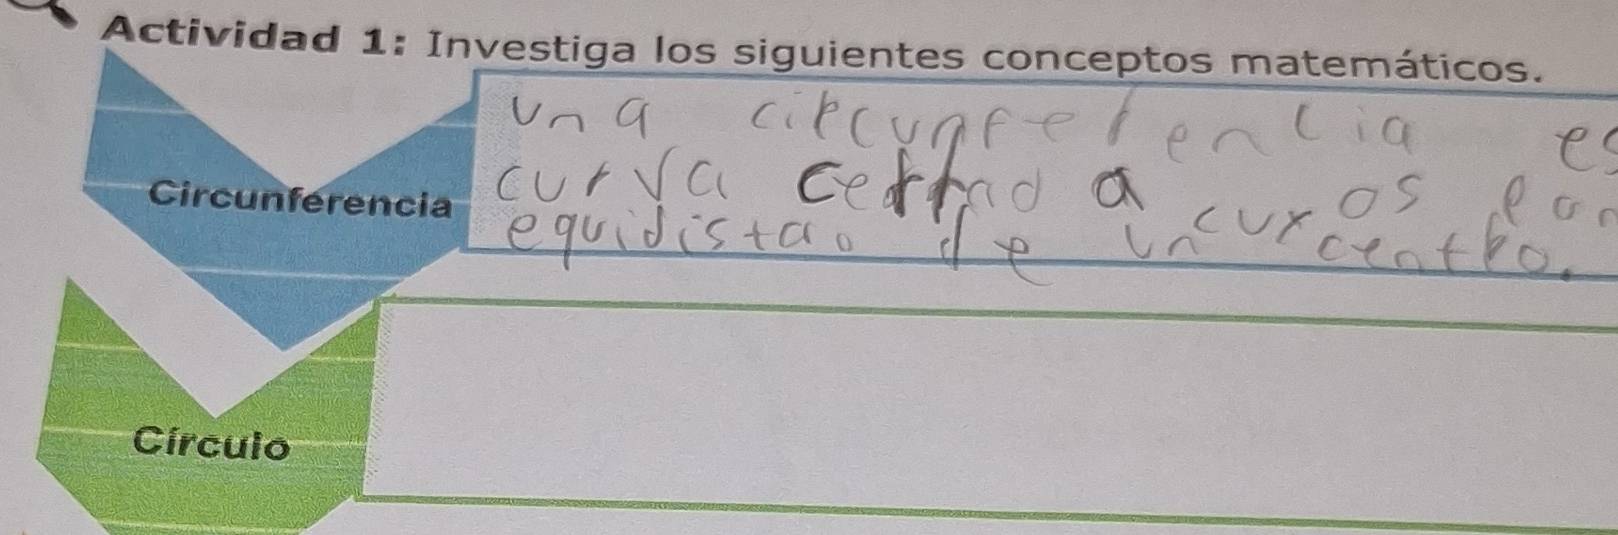 Actividad 1: Investiga los siguientes conceptos matemáticos.
Una circunferencia es
curva cerrada
equidista de un centro.
Circunferencia
Círculo